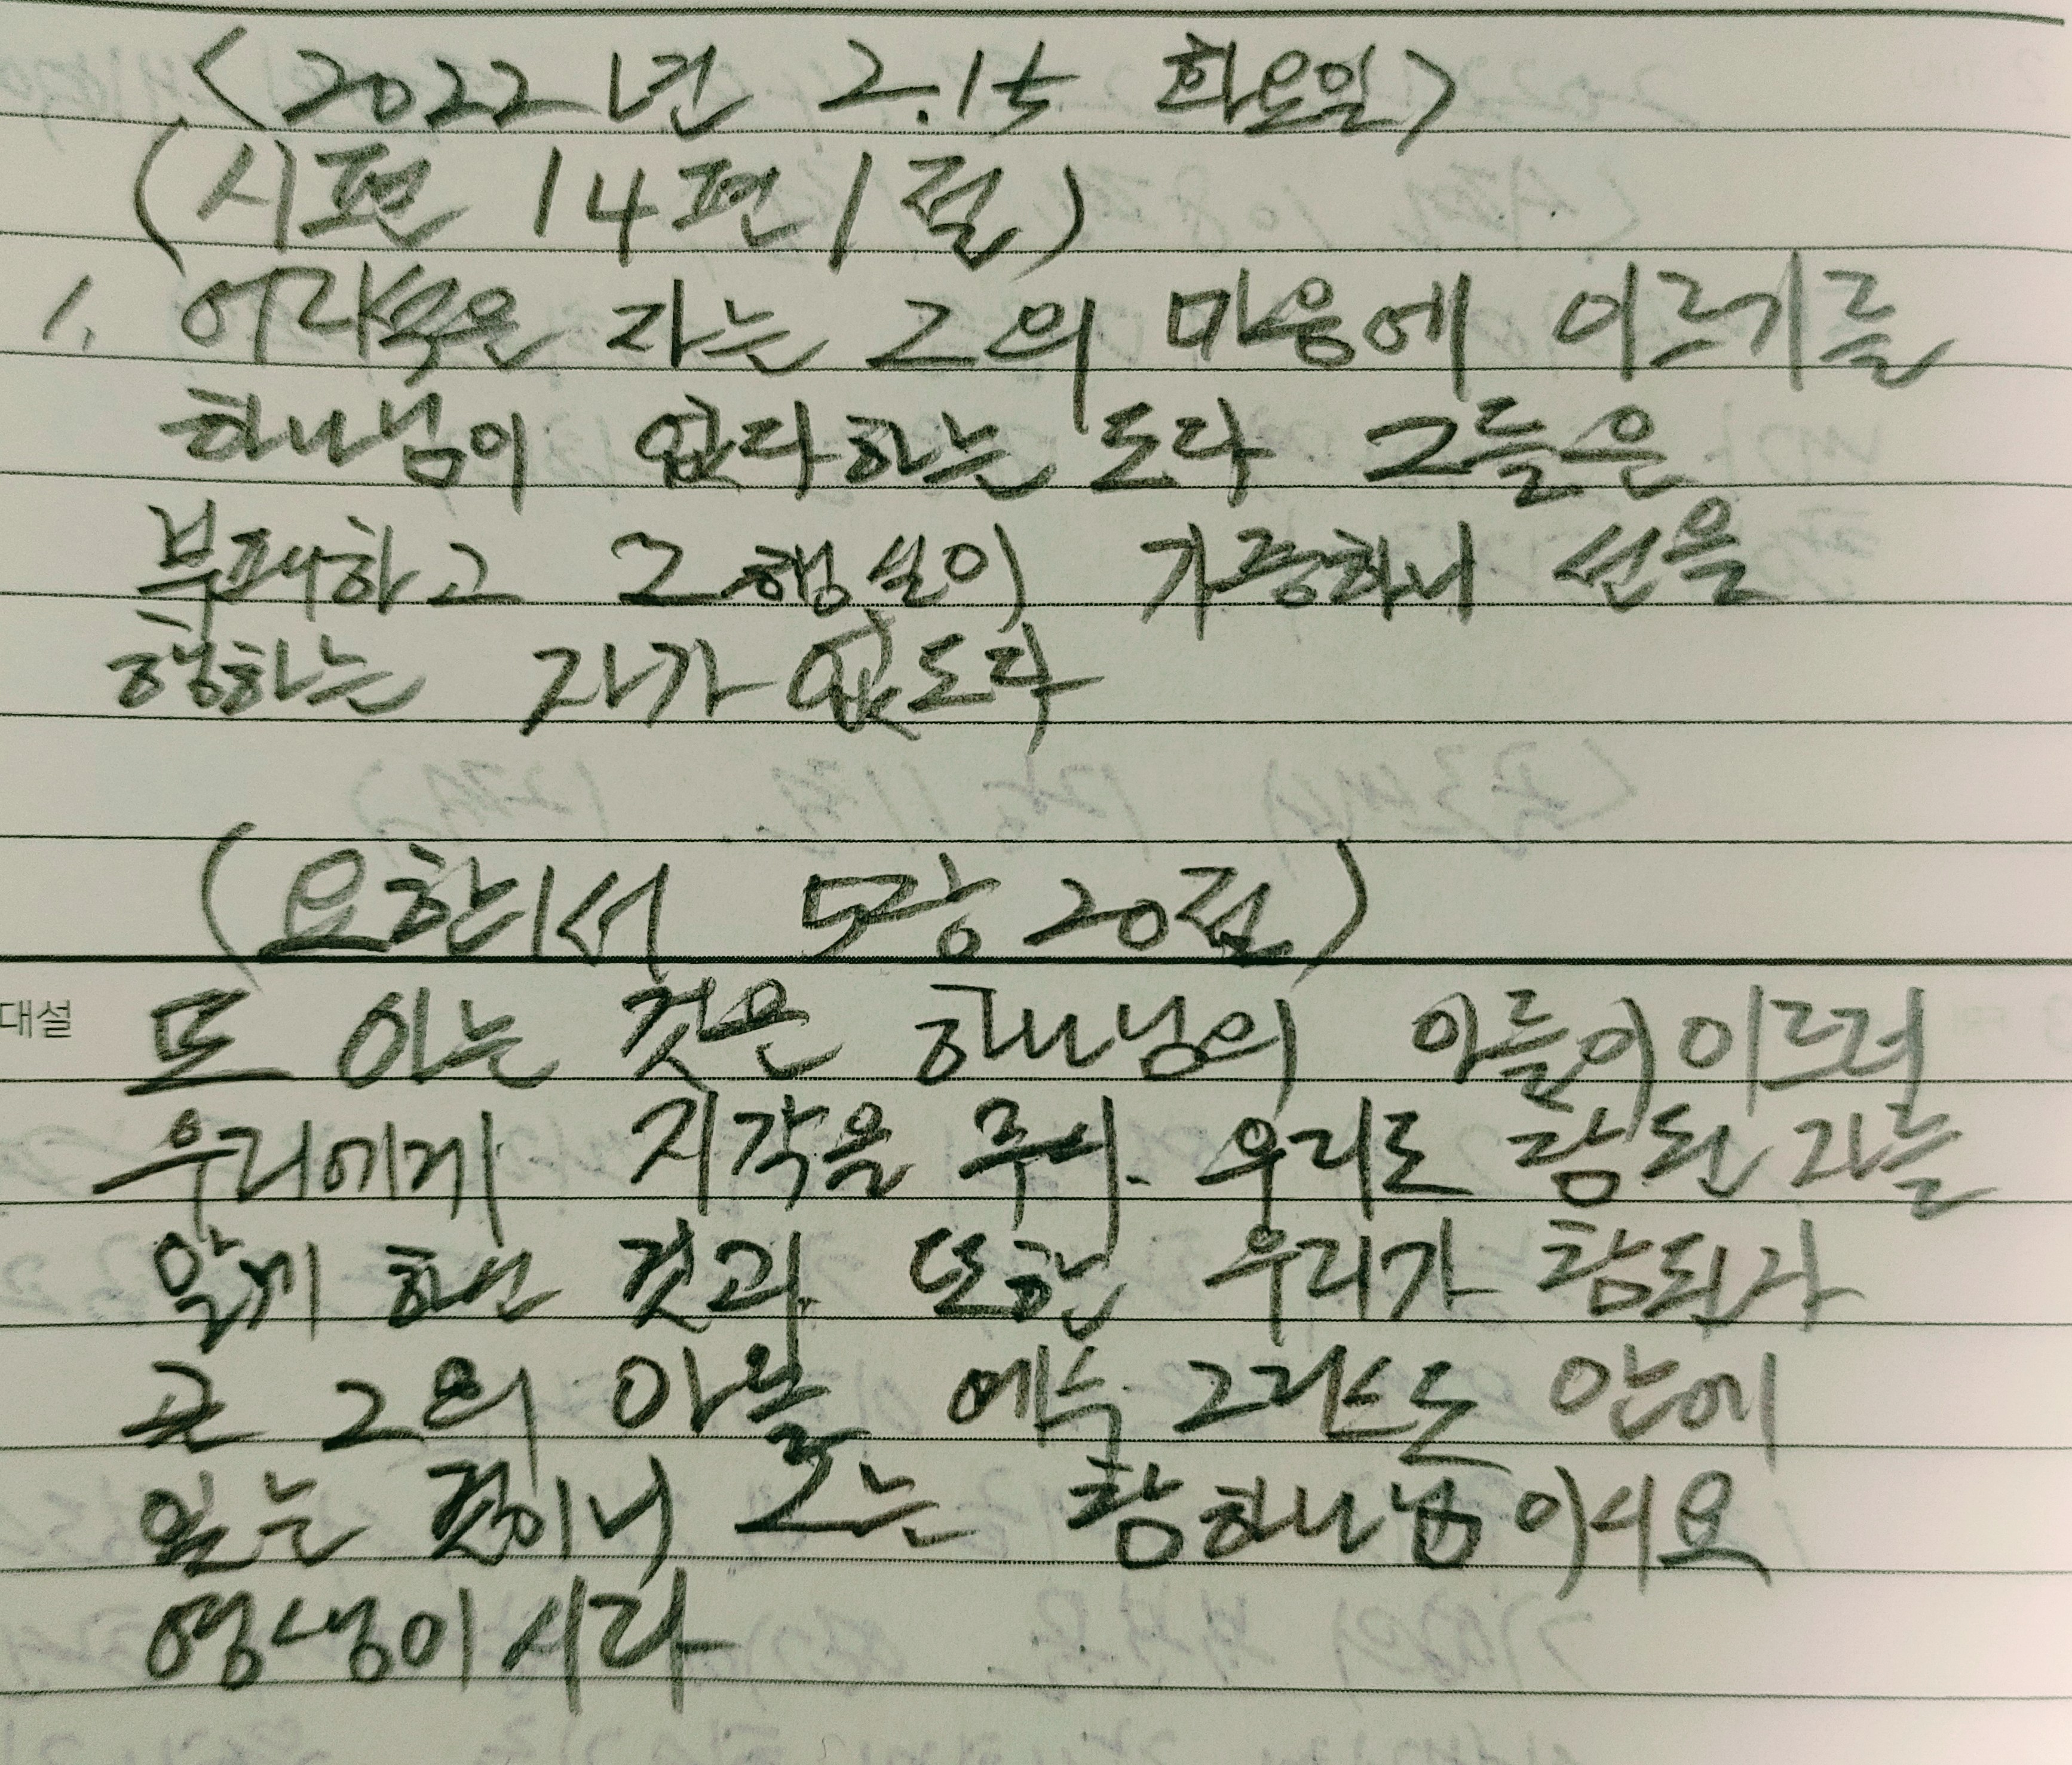 <2022년 2.15 화요일>
(시편 14편 1절)
1. 어리석은 자는 그의 마음에 이르기를
하나님이 없다하는 도다 그들은
부패하고 그 행실이 가증하니 선을
행하는 자가 없도다
(요한1서 5장 20절)
대설
또 아는 것은 하나님의 아들이 이르러
우리에게 지각을 주사 우리로 참된 자를
알게 하신 것과 또한 우리가 참된 자
곧 그의 아들 예수 그리스도 안에
있는 것이니 그는 참 하나님이시요
영생이시라